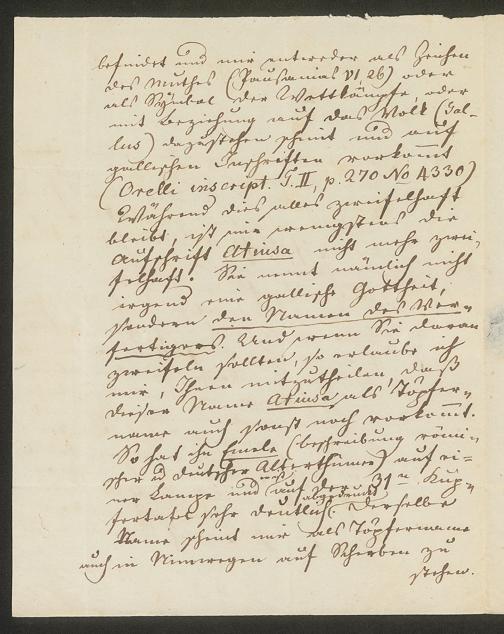 befindet und mir entweder als Zeichen
des Muthes (Pausanias VI, 26) oder
als Symbol der Wettkämpfe, oder
mit Beziehung auf das Volk (Gal-
lus) dazustehen scheint und auf
gallischen Inschriften vorkommt
(Orelli inscript. T. II, p. 270 No 4330)
Während dies alles zweifelhaft
bleibt, ist mir wenigstens die
Aufschrift Atiusa nicht mehr zwei-
felhaft. Sie nennt nämlich nicht
irgend eine gallische Gottheit,
sondern den Namen des Ver-
fertigers. Und wenn Sie daran
zweifeln sollten, so erlaube ich
mir, Ihnen mitzutheilen, daß
dieser Name Atiusa als Töpfer-
name auch sonst noch vorkommt.
So hat ihn Emele (Beschreibung römi-
scher u deutscher Alterthümer) auf ei-
ner Lampe und auf der 31n Kup-
fertafel sehr deutlich abgedruckt. Derselbe
Name scheint mir als Töpfername
auch in Nimwegen auf Scherben zu
stehen.